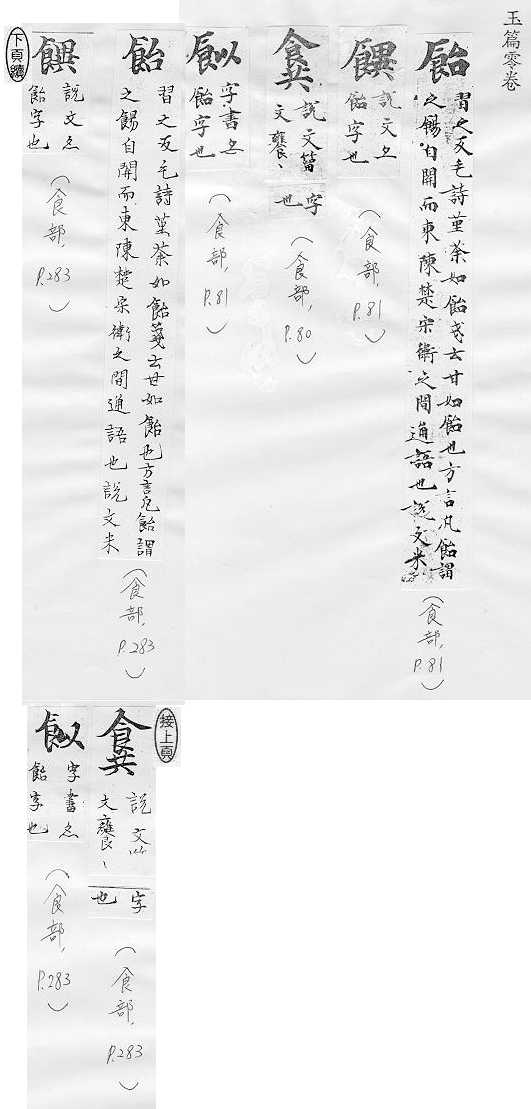 玉篇零卷
飴
習之反毛詩堇荼如飴戔云甘如飴也方言凡飴謂
之餳自開而東陳楚宋衛之間通語也說文米
(食部, P.81)
說文上
飴字也
(食部, P.81)
說文籀字
文饔、也
(食部, P.80)
字書上
飴字也
(食部, P.81)
飴
習之反毛詩堇荼如飴箋云甘如飴也方言凡飴謂
之餳自開而東陳楚宋衛之間通語也說文米
(食部, P.283)
說文亦
飴字也
(食部, P.283)
下頁續
接上頁
說文字
文、也
(食部, P.283)
字書亦
飴字也
(食部, P.283)